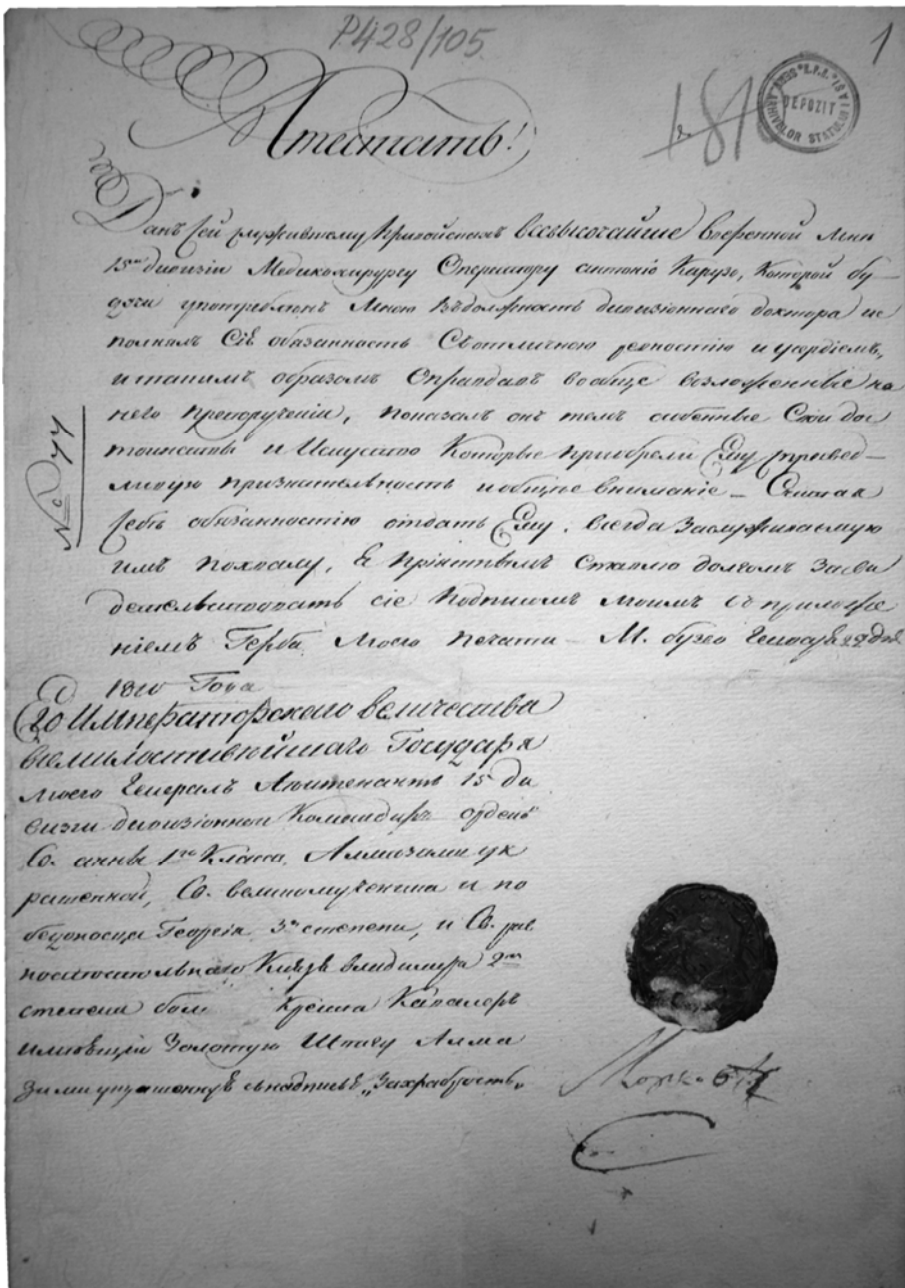 P428/105
1
181
ARHIVELOR STATULUI IASI
DEPOZIT
Атестатъ!
Данъ сей служившему при войскахъ всевысочайше вверенной мнѣ
15й дивизіи Медикохирургу Оператору антоніо Карузо, Которой бу-
дучи употребленъ мною въ должность дивизіоннаго доктора ис
полнялъ Сію обязанность Съ отличною ревностію и усердіемъ,
и такимъ образомъ Оправдавъ вообще возложенные на
него препорученіи, показалъ онъ темъ особенные Свои дос
тоинствы и Искуство Которые приобрели Ему справед-
ливую признательность и общее вниманіе - Считая
себѣ обязанностію отдать Ему, всегда Заслуживаемую
имъ похвалу, Ставлю долгомъ Засви
детельствовать сіе подписомъ моимъ съ приложе
ніемъ Герба Моего печати - М. бузео 22 дня
1810 Года
№ 77
Его Императорскаго величества
всемилостивейшаго Государя
моего Генералъ Лейтенантъ 15 ди
визіи дивизіонной Командиръ орденъ
Св. анны 1го Класа, Алмазами ук
рашенной, Св. великомученика и по
бедоносца Георгія 3й степени, и Св. рав
ноапостольнаго Князя владимира 2й
степени креста Кавалеръ
имеющій Золотую Шпагу Алма
зами украшенную съ надписью „За храбрость„
Марковъ